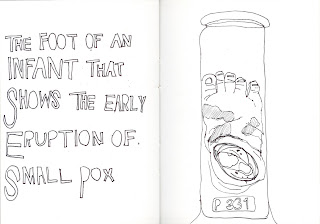 THE FOOT OF AN
INFANT THAT
SHOWS THE EARLY
ERUPTION OF.
SMALL POX
P 331